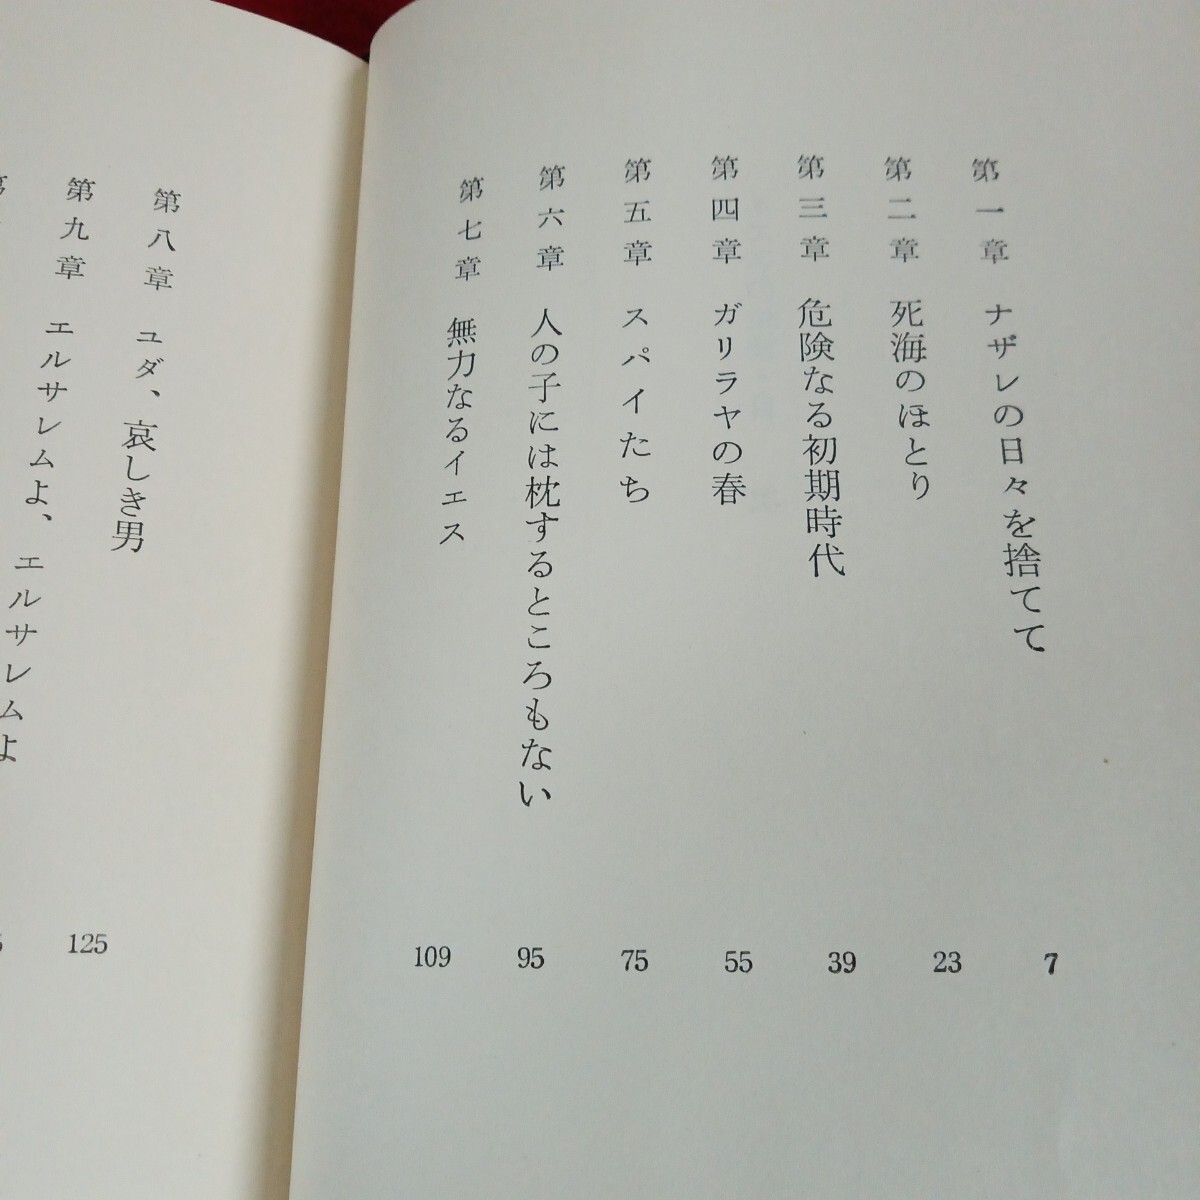 第一章 ナザレの日々を捨てて 7
第二章 死海のほとり 23
第三章 危険なる初期時代 39
第四章 ガリラヤの春 55
第五章 スパイたち 75
第六章 人の子には枕するところもない 95
第七章 無力なるイエス 109
第八章 ユダ、哀しき男 125
第九章 エルサレムよ、エルサレムよ